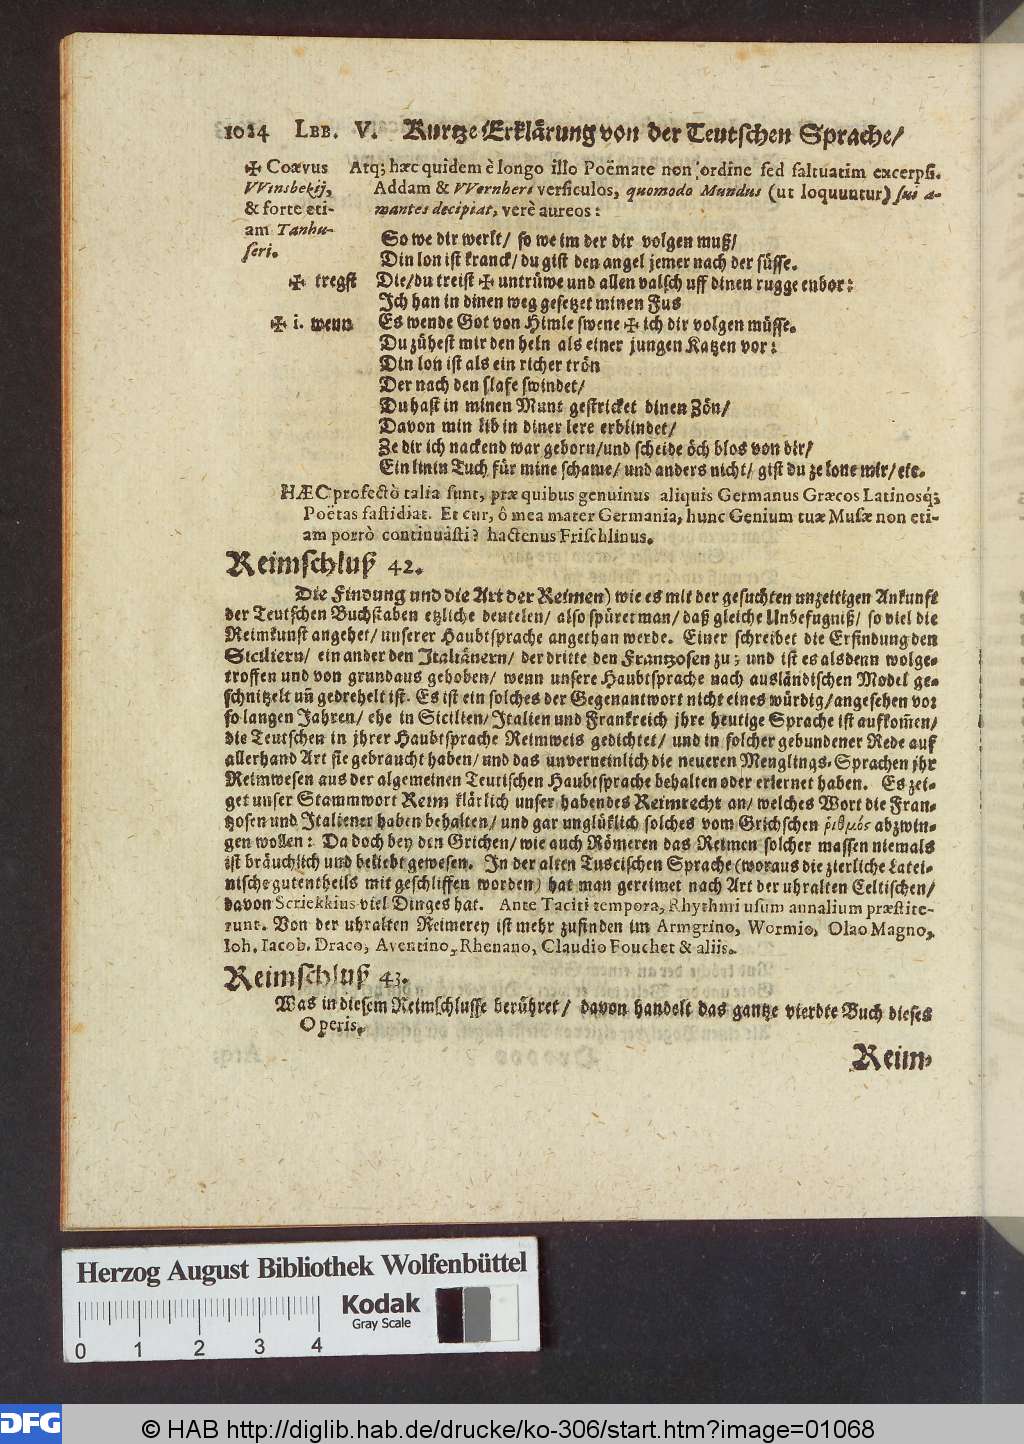 1024 LBB. V. Kurtze Erklärung von der Teutschen Sprache/
✠ Coævus
VVinsbekij,
& forte eti-
am Tanhu-
seri.
Atq; hæc quidem è longo illo Poëmate non ordine sed saltuatim excerpsi.
Addam & VVernhers versiculos, quomodo Mundus (ut loquuntur) sui a-
mantes decipiat, verè aureos:
So we dir werlt/ so we im der dir volgen muß/
Din lon ist kranck/ du gist den angel jemer nach der süsse.
✠ tregst Die/du treist ✠ untrüwe und allen valsch uff dinen rugge enbor:
Ich han in dinen weg gesetzet minen Fus
✠ i. wenn Es wende Got von Himle swene ✠ ich dir volgen müsse.
Du zühest mir den heln als einer jungen Katzen vor:
Din lon ist als ein richer trön
Der nach den slafe swindet/
Du hast in minen Munt gestricket dinen Zön/
Davon min lib in diner lere erblindet/
Ze dir ich nackend war geborn/und scheide öch blos von dir/
Ein linin Tuch für mine schame/ und anders nicht/ gist du ze lone mir/ etc.
HÆC profectò talia sunt, præ quibus genuinus aliquis Germanus Græcos Latinosq́;
Poëtas fastidiat. Et cur, ô mea mater Germania, hunc Genium tuæ Musæ non eti-
am porrò continuâsti? hactenus Frischlinus.
Reimschluß 42.
Die Findung und die Art der Reimen) wie es mit der gesuchten unzeitigen Ankunft
der Teutschen Buchstaben etzliche deutelen/ also spüret man/ daß gleiche Unbefugniß/ so viel die
Reimkunst angehet/ unserer Haubtsprache angethan werde. Einer schreibet die Erfindung den
Siciliern/ ein ander den Italiänern/ der dritte den Frantzosen zu; und ist es alsdenn wolge-
troffen und von grundaus gehoben/ wenn unsere Haubtsprache nach ausländischen Model ge-
schnitzelt uñ gedrehelt ist. Es ist ein solches der Gegenantwort nicht eines würdig/angesehen vor
so langen Jahren/ ehe in Sicilien/ Italien und Frankreich jhre heutige Sprache ist aufkom̃en/
die Teutschen in jhrer Haubtsprache Reimweis gedichtet/ und in solcher gebundener Rede auf
allerhand Art sie gebraucht haben/ und das unverneinlich die neueren Menglings-Sprachen jhr
Reimwesen aus der algemeinen Teutischen Haubtsprache behalten oder erlernet haben. Es zei-
get unser Stammwort Reim klärlich unser habendes Reimrecht an/ welches Wort die Fran-
tzosen und Italiener haben behalten/ und gar unglüklich solches vom Grichschen ῥιθμὸς abzwin-
gen wollen: Da doch bey den Grichen/ wie auch Römeren das Reimen solcher massen niemals
ist bräuchlich und beliebt gewesen. In der alten Tuscischen Sprache (woraus die zierliche Latei-
nische gutentheils mit geschliffen worden) hat man gereimet nach Art der uhralten Celtischen/
davon Scriekkius viel Dinges hat. Ante Taciti tempora, Rhythmi usum annalium præstite-
runt. Von der uhralten Reimerey ist mehr zufinden im Armgrino, Wormio, Olao Magno,
Ioh. Iacob. Draco, Aventino, Rhenano, Claudio Fouchet & aliis.
Reimschluß 43.
Was in diesem Reimschlusse berühret/ davon handelt das gantze vierdte Buch dieses
Operis.
Reim-
Herzog August Bibliothek Wolfenbüttel
Kodak
Gray Scale
0 1 2 3 4
DFG © HAB http://diglib.hab.de/drucke/ko-306/start.htm?image=01068